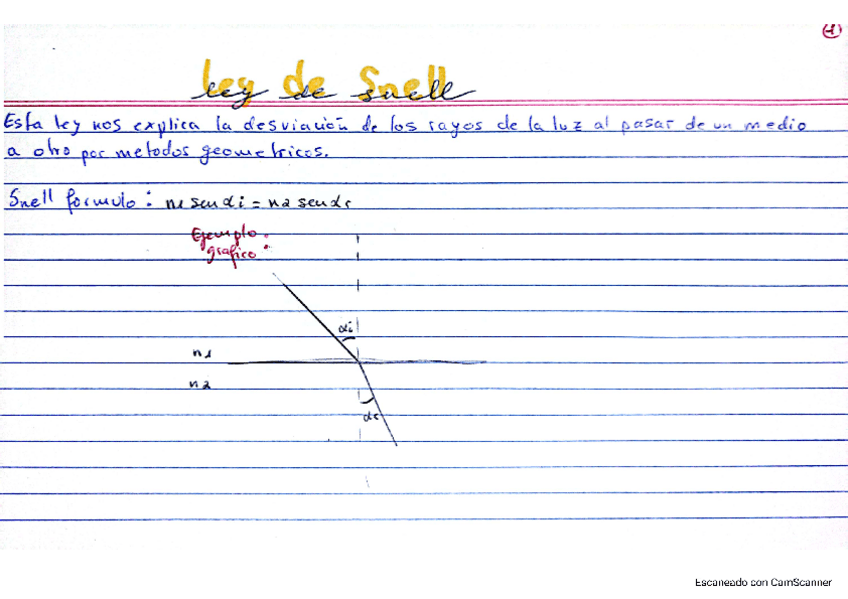 1
Ley de Snell
Esta ley nos explica la desviación de los rayos de la luz al pasar de un medio
a otro por metodos geometricos.
Snell formulo: n1 sen αi = n2 sen αr
Ejemplo
grafico:
αi
n1
n2
αr
Escaneado con CamScanner